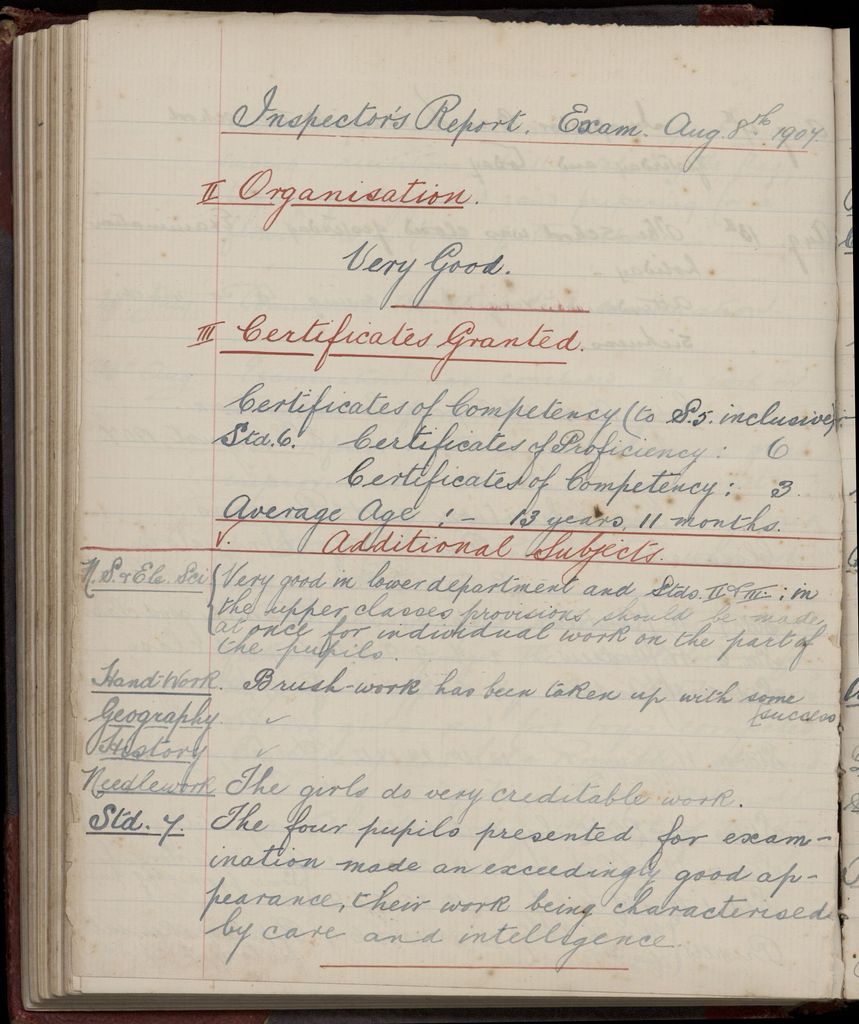 Inspector's Report. Exam. Aug. 8th 1907
II Organisation.
Very Good.
III Certificates Granted.
Certificates of Competency (to S.5. inclusive):-
Std. 6. Certificates of Proficiency: 6
Certificates of Competency: 3.
Average Age :- 13 years, 11 months.
V. Additional Subjects.
N. S. & Ele. Sci { Very good in lower department and Stds. II & III. ; in
the upper classes provisions should be made
at once for individual work on the part of
the pupils.
Hand-Work. Brush-work has been taken up with some
{success
Geography. ✓
History ✓
Needlework The girls do very creditable work.
Std. 7. The four pupils presented for exam-
ination made an exceedingly good ap-
pearance, their work being characterised
by care and intelligence.